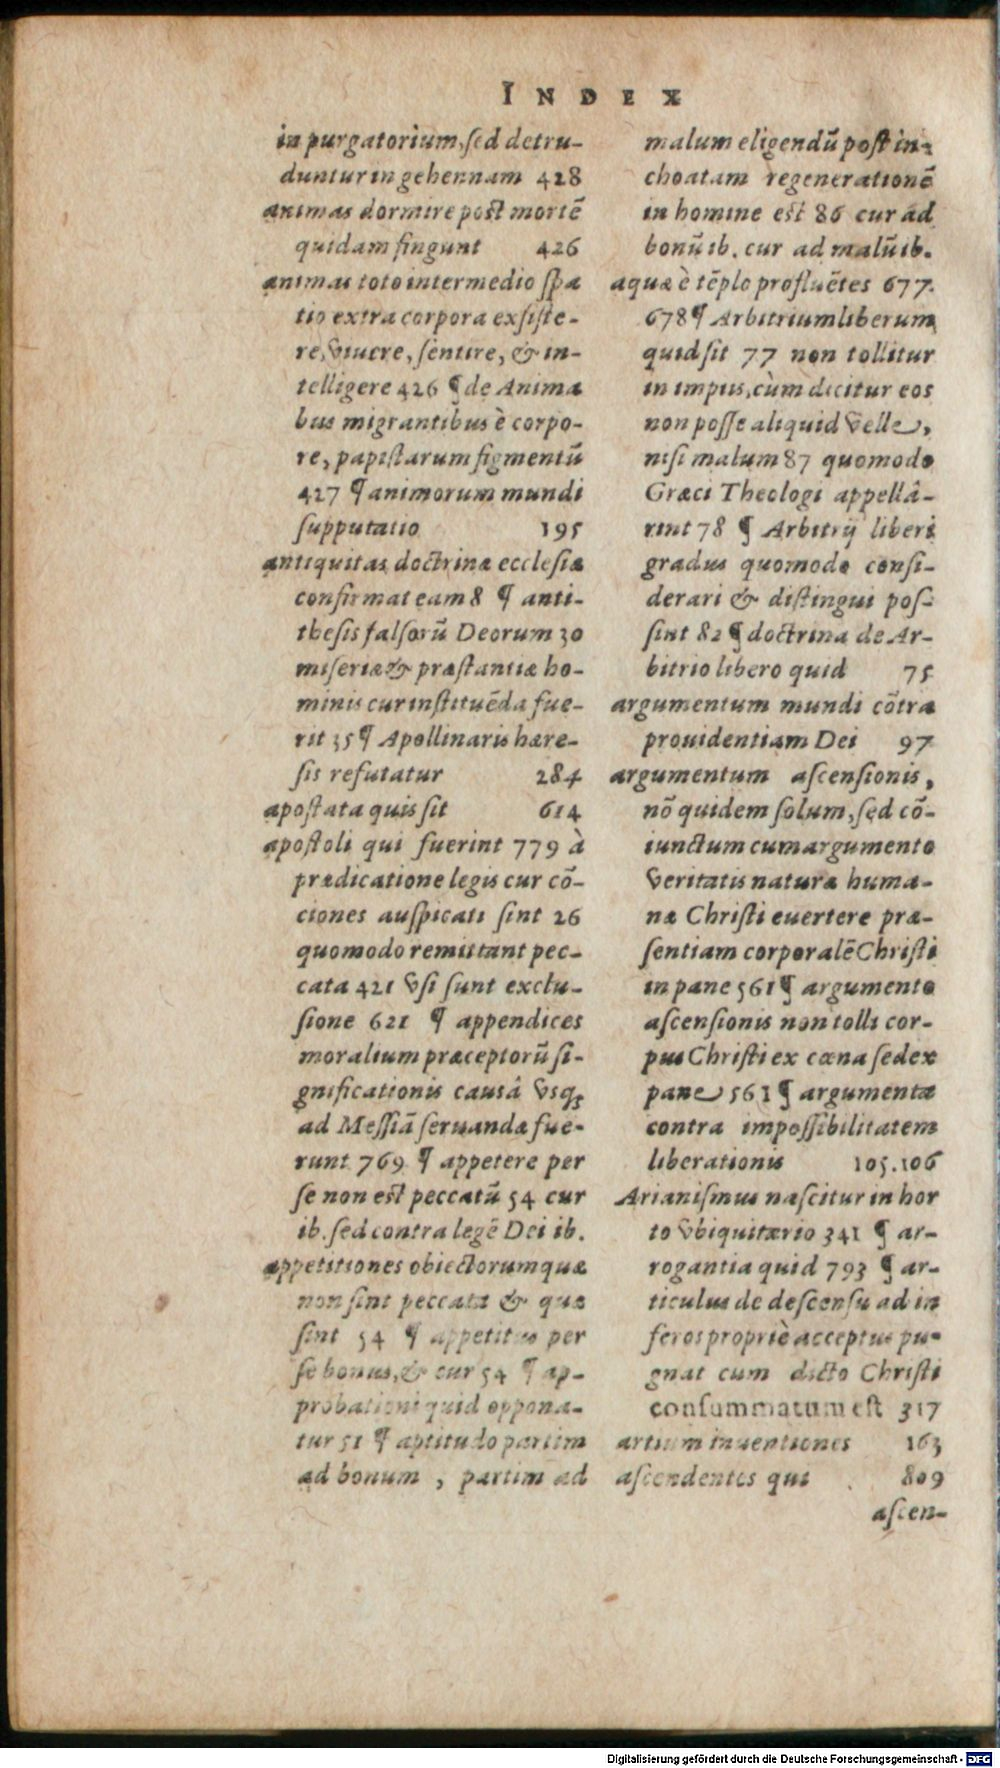 INDEX
in purgatorium, sed detru-
duntur in gehennam 428
animas dormire post mortē
quidam fingunt 426
animas toto intermedio spa
tio extra corpora exsiste-
re, viuere, sentire, & in-
telligere 426 ¶ de Anima
bus migrantibus è corpo-
re, papistarum figmentū
427 ¶ animorum mundi
supputatio 195
antiquitas doctrinæ ecclesiæ
confirmat eam 8 ¶ anti-
thesis falsorū Deorum 30
miseriæ & præstantiæ ho-
minis cur instituēda fue-
rit 35 ¶ Apollinaris hære-
sis refutatur 284
apostata quis sit 614
apostoli qui fuerint 779 à
prædicatione legis cur cō-
ciones auspicati sint 26
quomodo remittant pec-
cata 421 vsi sunt exclu-
sione 621 ¶ appendices
moralium præceptorū si-
gnificationis causâ vsq;
ad Messiā seruandæ fue-
runt 769 ¶ appetere per
se non est peccatū 54 cur
ib. sed contra legē Dei ib.
appetitiones obiectorum quæ
non sint peccata & quæ
sint 54 ¶ appetitus per
se bonus, & cur 54 ¶ ap-
probationi quid oppona-
tur 51 ¶ aptitudo partim
ad bonum , partim ad
malum eligendū post in-
choatam regenerationē
in homine est 86 cur ad
bonū ib. cur ad malū ib.
aquæ è tēplo profluētes 677.
678 ¶ Arbitrium liberum
quid sit 77 non tollitur
in impiis, cùm dicitur eos
non posse aliquid velle,
nisi malum 87 quomodo
Græci Theologi appellâ-
rint 78 ¶ Arbitrij liberi
gradus quomodo consi-
derari & distingui pos-
sint 82 ¶ doctrina de Ar-
bitrio libero quid 75
argumentum mundi cōtra
prouidentiam Dei 97
argumentum ascensionis,
nō quidem solum, sed cō-
iunctum cum argumento
veritatis naturæ huma-
næ Christi euertere præ-
sentiam corporalē Christi
in pane 561 ¶ argumento
ascensionis non tolli cor-
pus Christi ex cœna sed ex
pane 561 ¶ argumenta
contra impossibilitatem
liberationis 105.106
Arianismus nascitur in hor
to vbiquitærio 341 ¶ ar-
rogantia quid 793 ¶ ar-
ticulus de descensu ad in
feros propriè acceptus pu-
gnat cum dicto Christi
consummatum est 317
artium inuentiones 163
ascendentes qui 809
ascen-
Digitalisierung gefördert durch die Deutsche Forschungsgemeinschaft - DFG